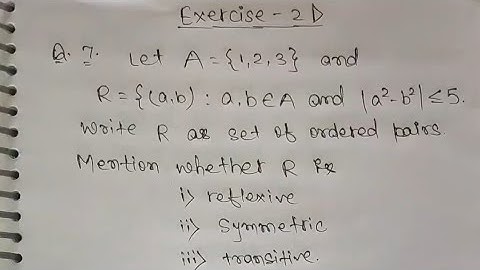 Exercise - 2D
Q. 7. Let A = {1, 2, 3} and
R = {(a,b) : a, b ∈ A and |a²-b²| ≤ 5.
Write R as set of ordered pairs.
Mention whether R
i) reflexive
ii) Symmetric
iii) transitive.